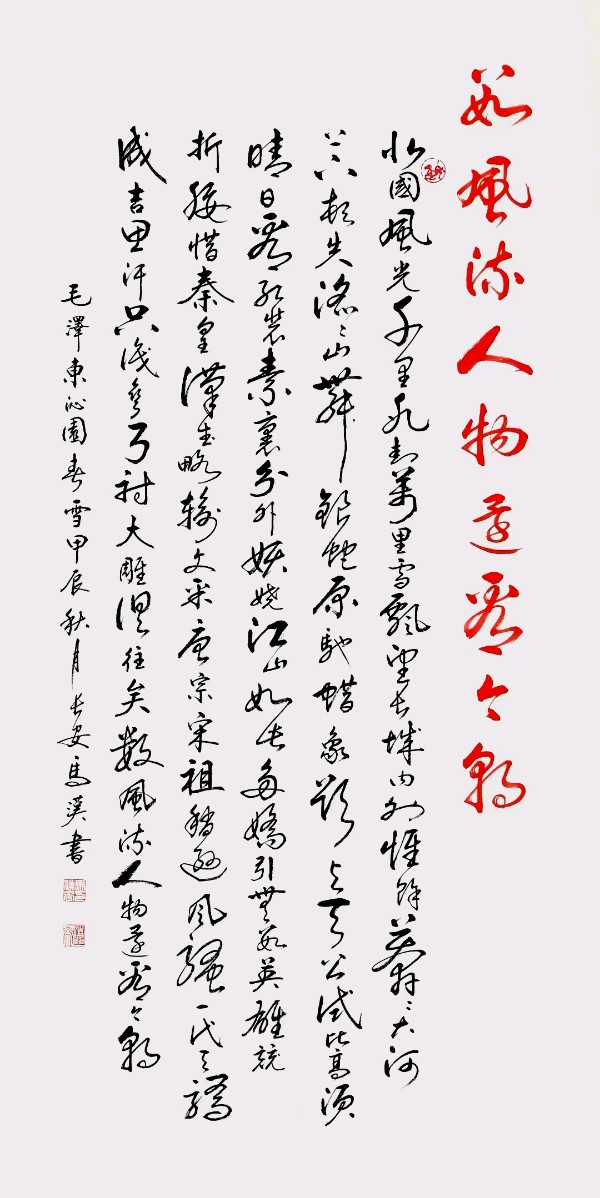 數風流人物還看今朝
北國風光千里冰封萬里雪飄望長城内外惟餘莽〻大河
上下頓失滔〻山舞銀蛇原馳蜡象欲與天公試比高須
晴日看紅裝素裹分外妖嬈江山如此多嬌引無數英雄競
折腰惜秦皇漢武略輸文采唐宗宋祖稍遜風騷一代天驕
成吉思汗只識彎弓射大雕俱往矣數風流人物還看今朝
毛澤東沁園春雪甲辰秋月長安馬漢書